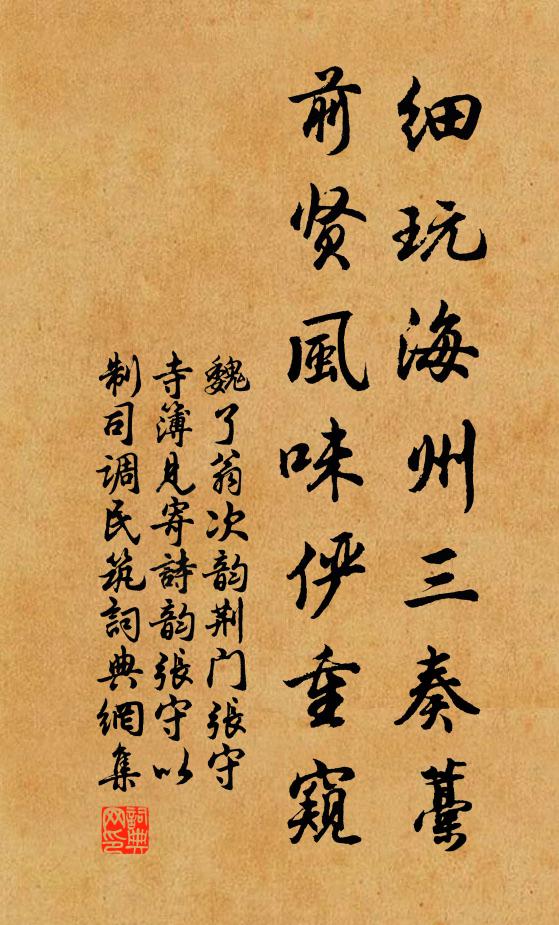 细玩海州三奏藁
前贤風味俨重窥
魏了翁次韵荆门張守
寺簿见寄詩韵張守以
制司调民筑詞典網集
詞典网印